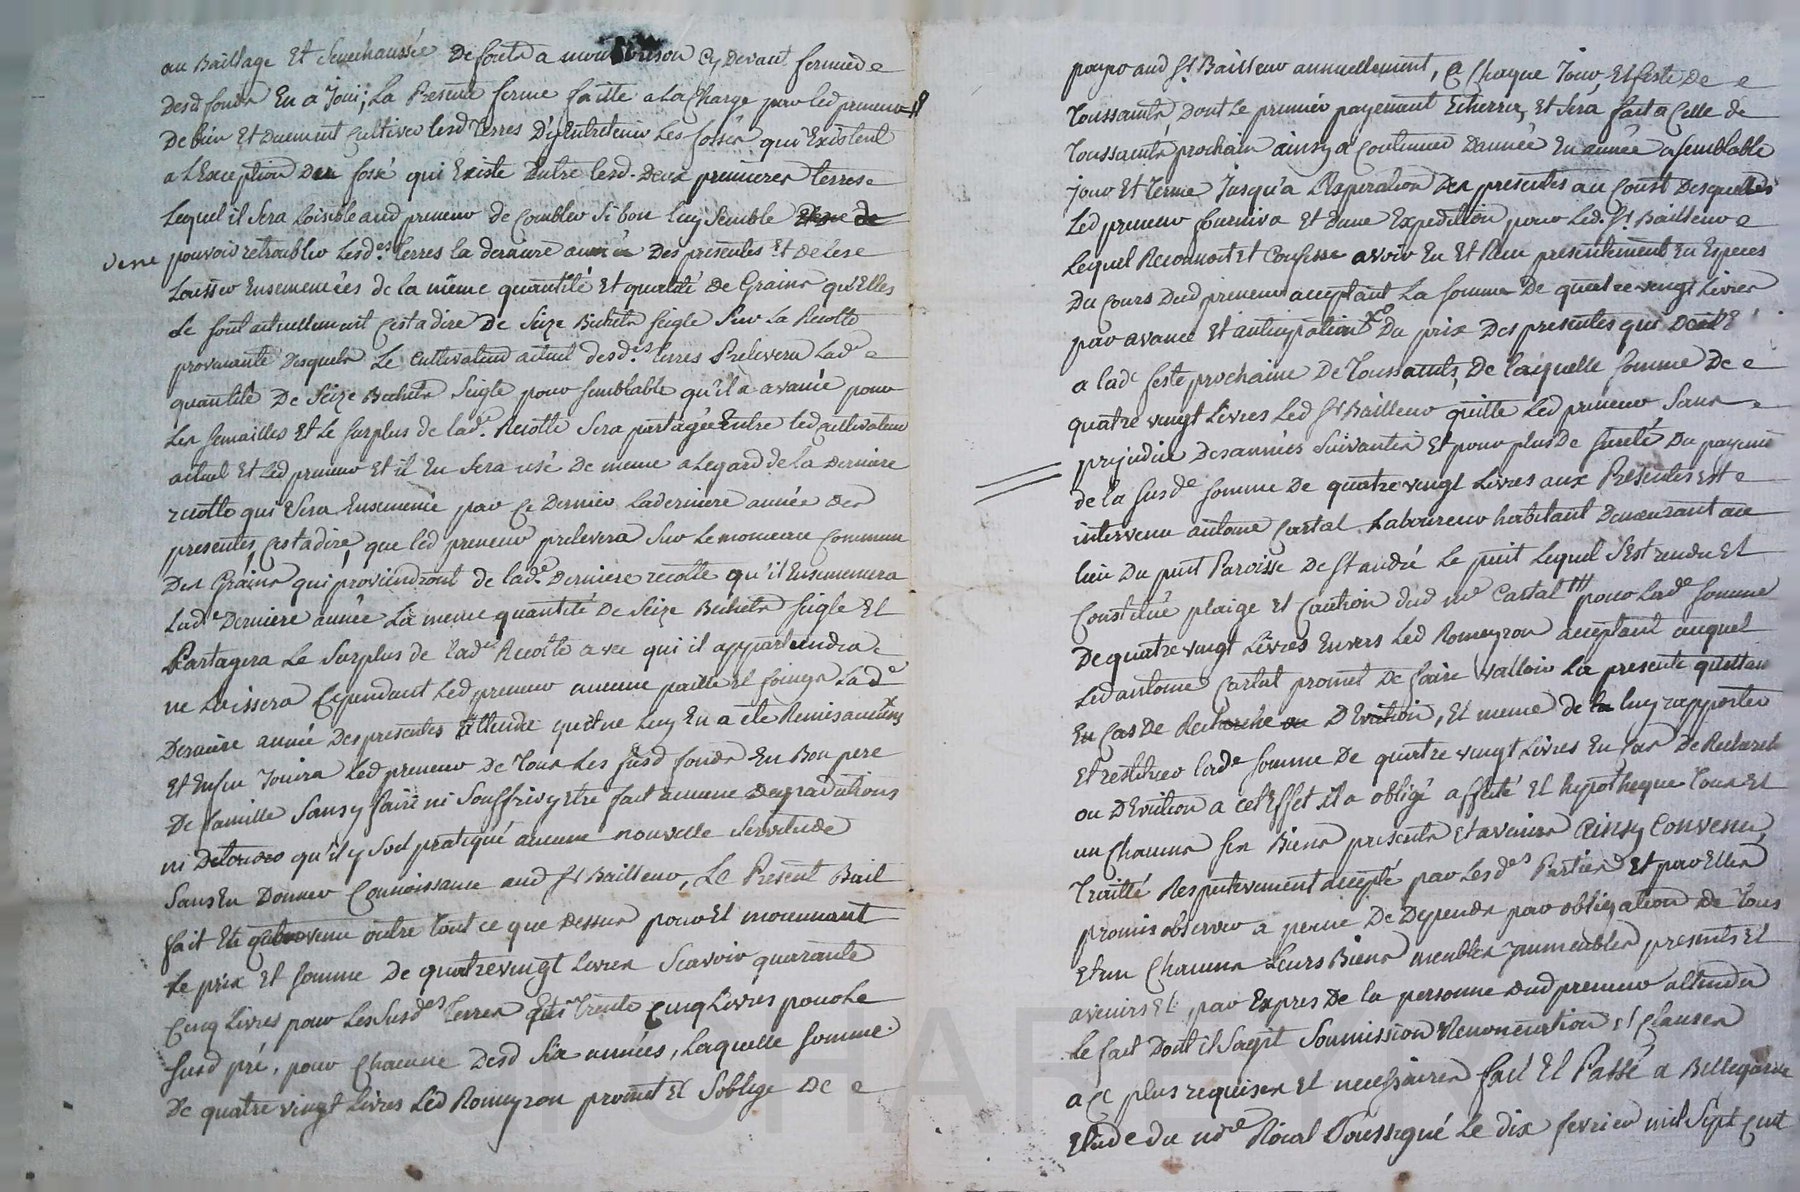 au Baillage Et Senechaussée De forêts a montbrison Cy Devant fermier
Desd fonds En a Joui; La Présente ferme faitte a La Charge par led preneur
De bien Et Duement Cultiver lesd Terres D'y Entretenir Les fossés qui Existent
a L'Exception Du fossé qui Existe Entre lesd. Deux premieres terres
Lequel il Sera Loisible aud preneur de Combler Si bon Luy Semble
de ne pouvoir retroubler Lesd.es Terres la derniere année Des présentes Et de les
Laisser Ensemencées de la même quantité Et qualité De Grains qu'Elles
Le sont actuellement C'est a dire De Seize Bichets seigle Sur La Récolte
provenante Desquels Le Cultivateur actuel desd.es terres Prelevera Lad.e
quantité De Seize Bichets Seigle pour semblable qu'il a avancé pour
Les semailles Et Le surplus de lad.e Récolte Sera partagée Entre led cultivateur
actuel Et Led preneur Et il En Sera usé De meme a L'egard de la Derniere
récolte qui Sera Ensemencée par Ce Dernier La derniere année des
presentes, C'est a dire, que led preneur prelevera Sur Le monceau Commun
Des Grains qui proviendront de lad.e Derniere récolte qu'il Ensemencera
Lad.e Derniere année La meme quantité De Seize Bichets seigle Et
Partagera Le Surplus de lad.e Récolte avec qui il appartiendra
ne Laissera Cependant Led preneur aucune paille et foings La d.e
Derniere année Des presentes Attendu qu'il ne Luy En a été Remis aucuns
Et Enfin Jouira Led preneur De Tous Les susd fonds En Bon pere
De famille Sans y faire ni Souffrir y Etre fait aucune Degradations
ni Deteriorer qu'il y Soit pratiqué aucune nouvelle Servitude
Sans En Donner Connoissance aud Sr Bailleur, Le Présent Bail
fait Et Convenu outre Tout ce que Dessus pour Et moyennant
Le prix Et somme De quatrevingt Livres Scavoir quarante
Cinq Livres pour Les Susd.es Terres Et Trente Cinq Livres pour Le
susd pré, pour Chacune Desd Six années, Laquelle Somme
De quatre vingt Livres Led Romeyron promet Et S'oblige De
payer aud Sr Bailleur annuellement, a Chaque Jour, Et feste De
Toussaints, Dont Le premier payement Echerra, Et Sera fait a Celle de
Toussaints prochain ainsy a Continuer D'année En année a semblable
jour Et Terme Jusqu'a L'Expiration Des presentes au Coust Desquelles
Led preneur fournira Et D'une Expedition pour Led. Sr Bailleur
Lequel Reconnoit Et Confesse avoir Eu Et Reçu presentement En Especes
Du Cours Dud preneur acceptant La somme De quatre vingt Livres
par avance Et anticipation Du prix Des presentes qui
a lad.e feste prochaine De Toussaints, De laquelle somme De
quatre vingt Livres Led Sr Bailleur quitte Led preneur Sans
prejudice Des années Suivantes Et pour plus De sureté Du payement
de la susd.e somme De quatre vingt Livres aux Présentes est
intervenu antoine Cartal Laboureur habitant Demeurant au
lieu Du puit Paroisse De St andré Le puit Lequel s'est rendu Et
Constitué plaige Et Caution dud Cartal pour Lad.e somme
De quatre vingt Livres Envers Led Romeyron acceptant auquel
Led antoine Cartal promet De faire Valloir La presente quittance
En Cas De Recherche ou D'Eviction, Et meme de luy rapporter
Et restituer lad.e somme De quatre vingt Livres En Cas De Recherche
ou D'Eviction a cet Effet il a obligé affecté Et hypotheque Tous Et
un Chacuns ses Biens presents Et avenirs Ainsy Convenu,
Traitté Respectivement accepté par Lesd.es Parties Et par Elles
promis observer a peine De Depends par obligation De Tous
Et un Chacuns Leurs Biens meubles immeubles presents Et
avenirs Et, par Expres De la personne Dud preneur attendu
Le fait Dont il s'agit Soumission Renonciation Et Clauses
a Ce plus requises Et necessaires fait Et Passé a Bellegarde
Etude du no.re Roial Soussigné Le dix fevrier mil Sept Cent